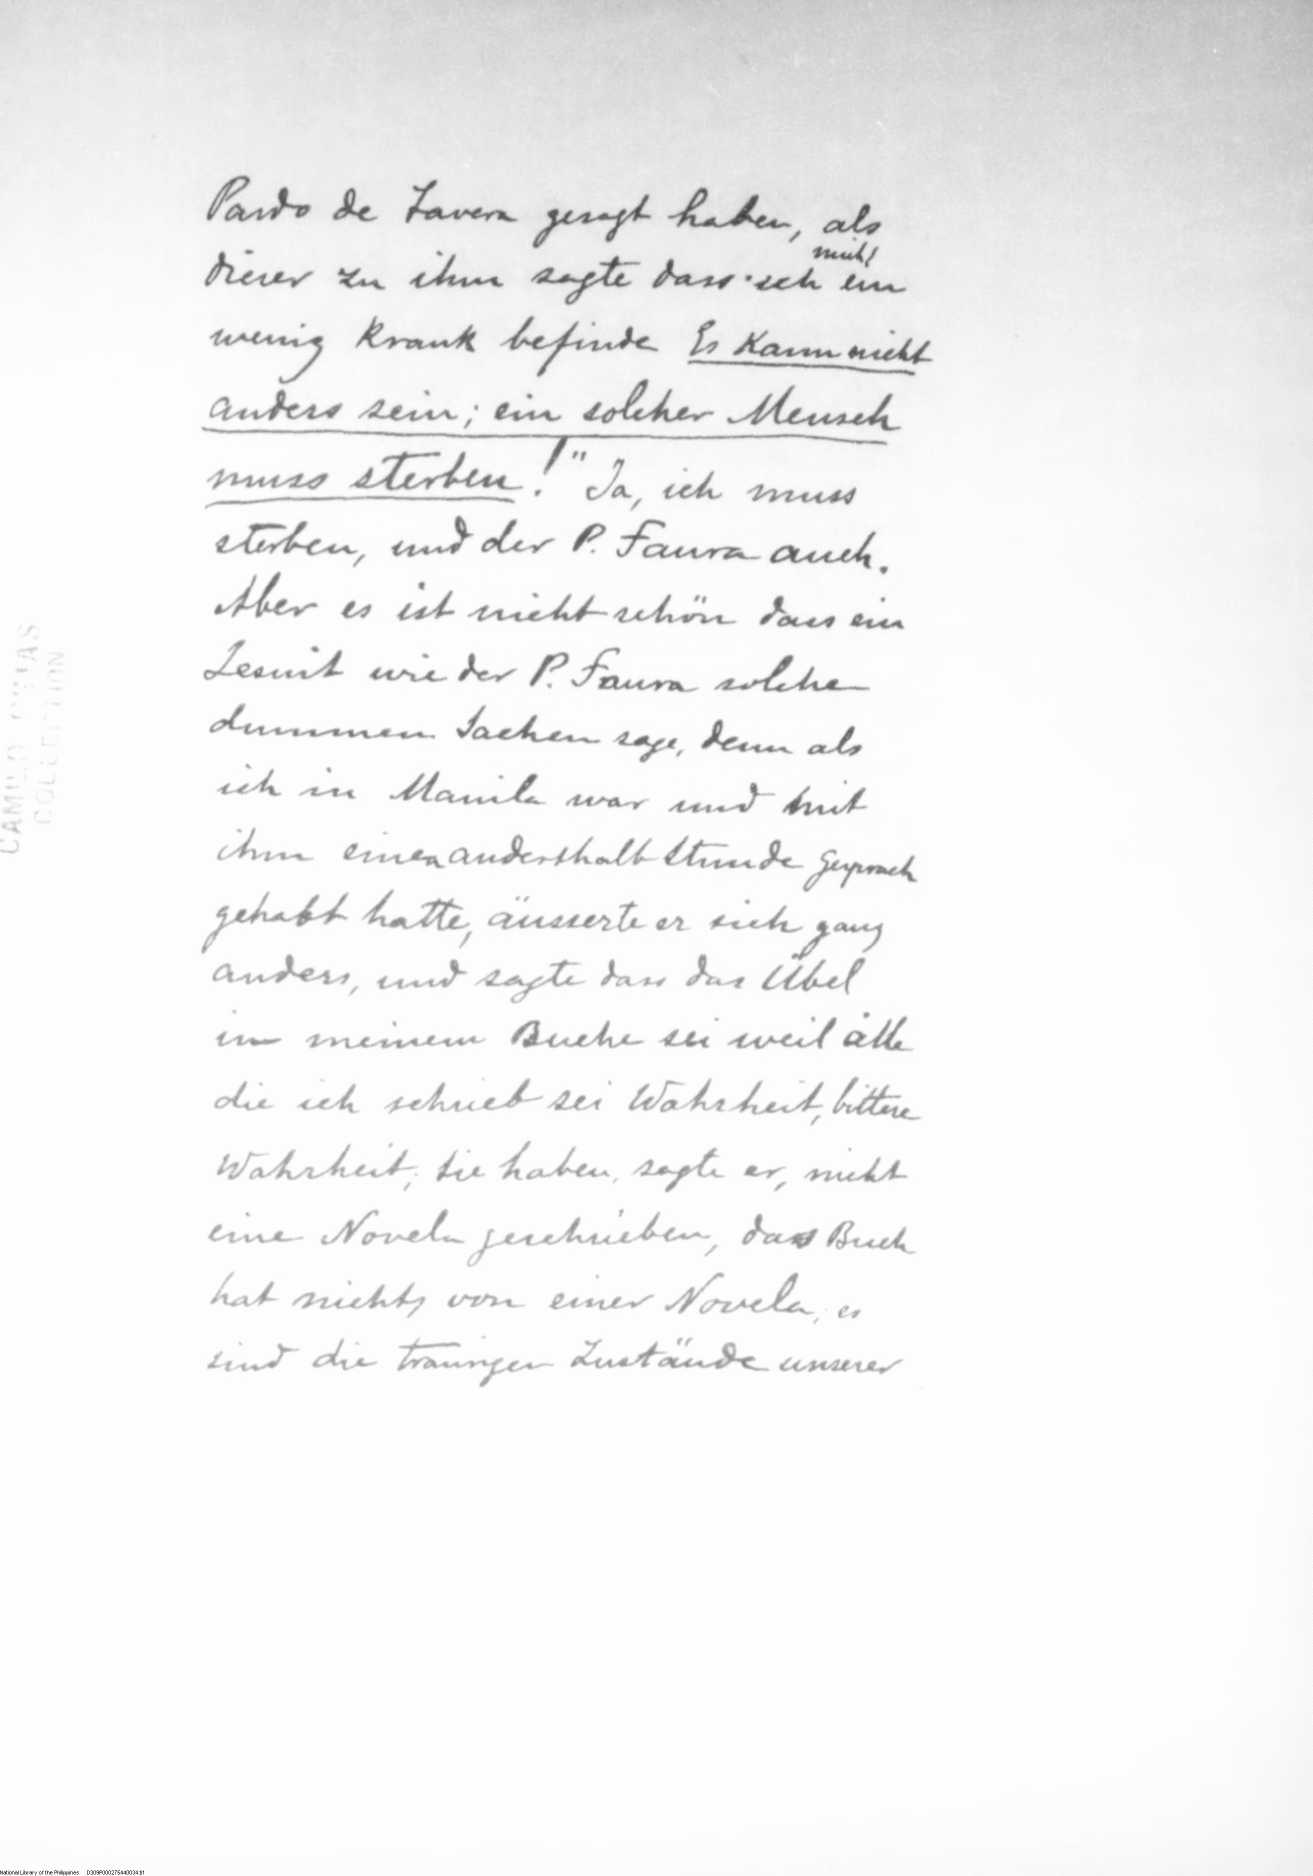 Pardo de Tavera gesagt haben, als
mich!
dieser zu ihm sagte dass ich ein
wenig krank befinde Es kann nicht
anders sein; ein solcher Mensch
muss sterben!" Ja, ich muss
sterben, und der P. Faura auch.
Aber es ist nicht schön dass ein
Jesuit wie der P. Faura solche
dummen Sachen sage, denn als
ich in Manila war und mit
ihm einen anderthalb Stunde Gesprach
gehabt hatte, äusserte er sich ganz
anders, und sagte dass das Übel
in meinem Buche sei weil alle
die ich schrieb sei Wahrheit, bittere
Wahrheit; Sie haben, sagte er, nicht
eine Novela geschrieben, das Buch
hat nichts von einer Novela, es
sind die traurigen Zustände unserer
CAMILO OSIAS
COLLECTION
National Library of the Philippines D309P000275440034.tif